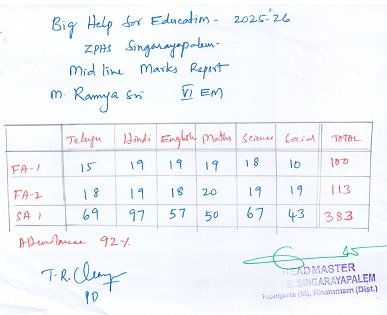 Big Help for Education - 2025-'26
ZPHS Singarayapalem
Mid line Marks Report
M. Ramya Sri VI EM
Telugu Hindi English Maths Science Social TOTAL
FA-1 15 19 19 19 18 10 100
FA-2 18 19 18 20 19 19 113
SA 1 69 97 57 50 67 43 383
Attendance 92%
T.R.
PD
HEADMASTER
SINGARAYAPALEM
(M), Khammam (Dist.)